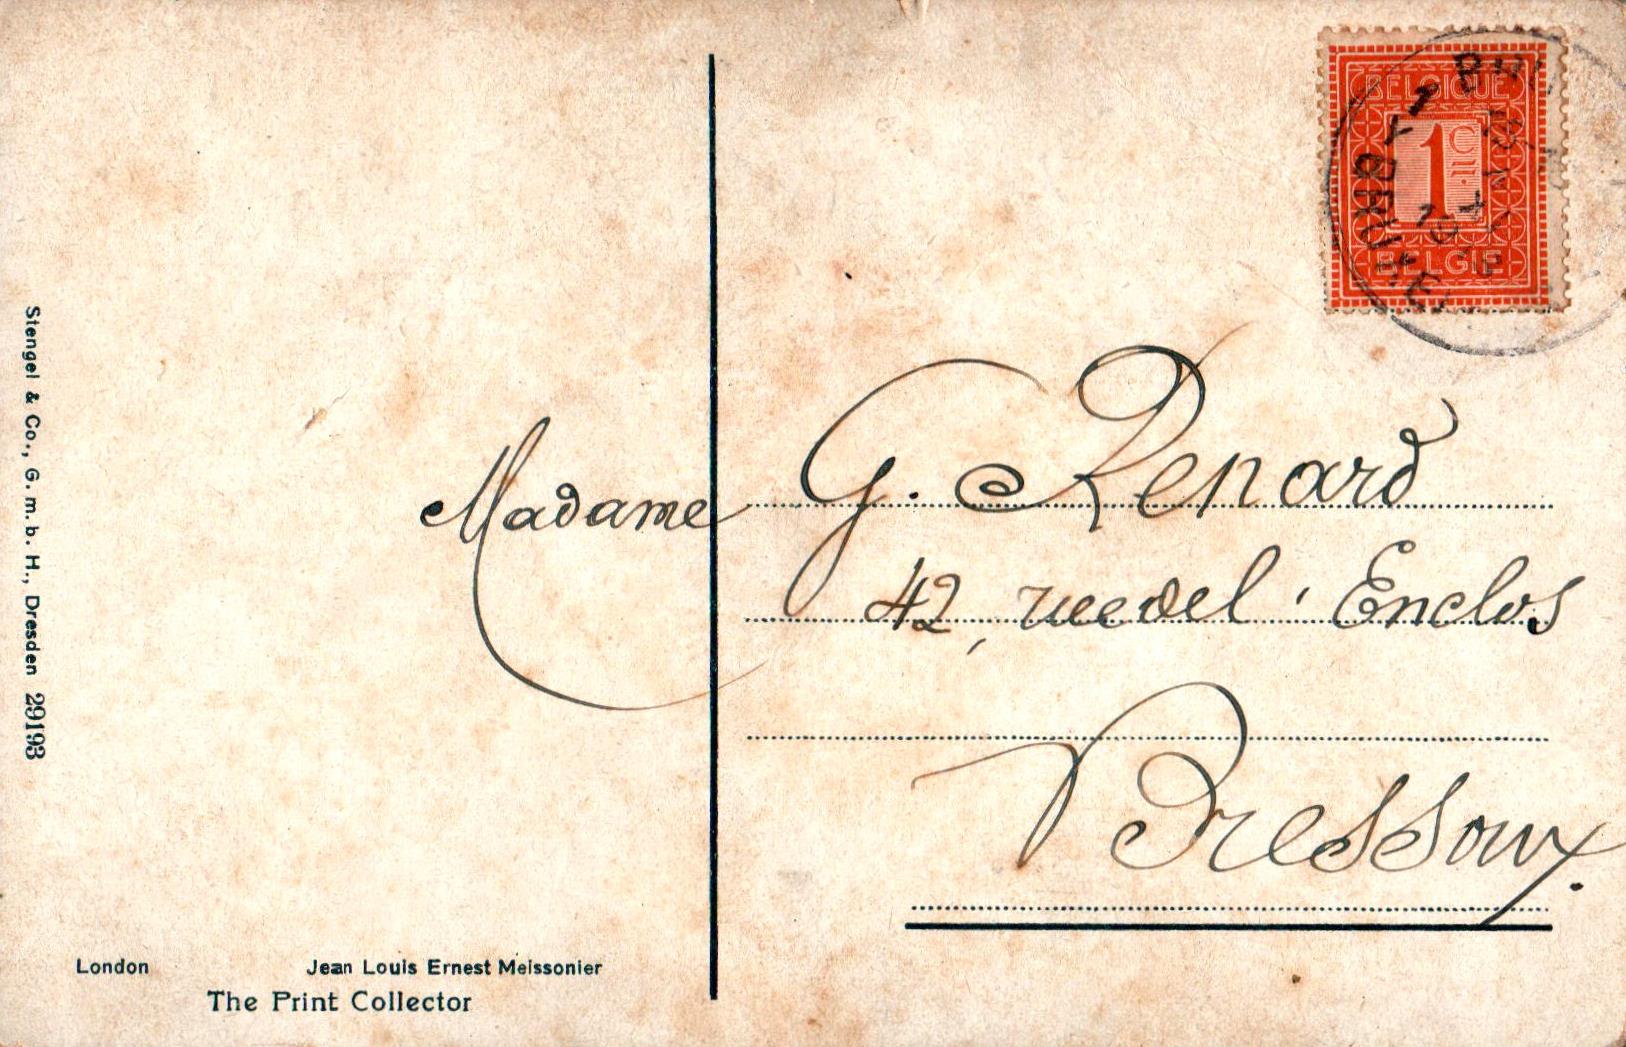 BELGIQUE
1 C
BELGIË
Madame G. Renard
42, rue de l'Enclos
Bressoux.
Stengel & Co., G. m. b. H., Dresden 29193
London Jean Louis Ernest Meissonier
The Print Collector